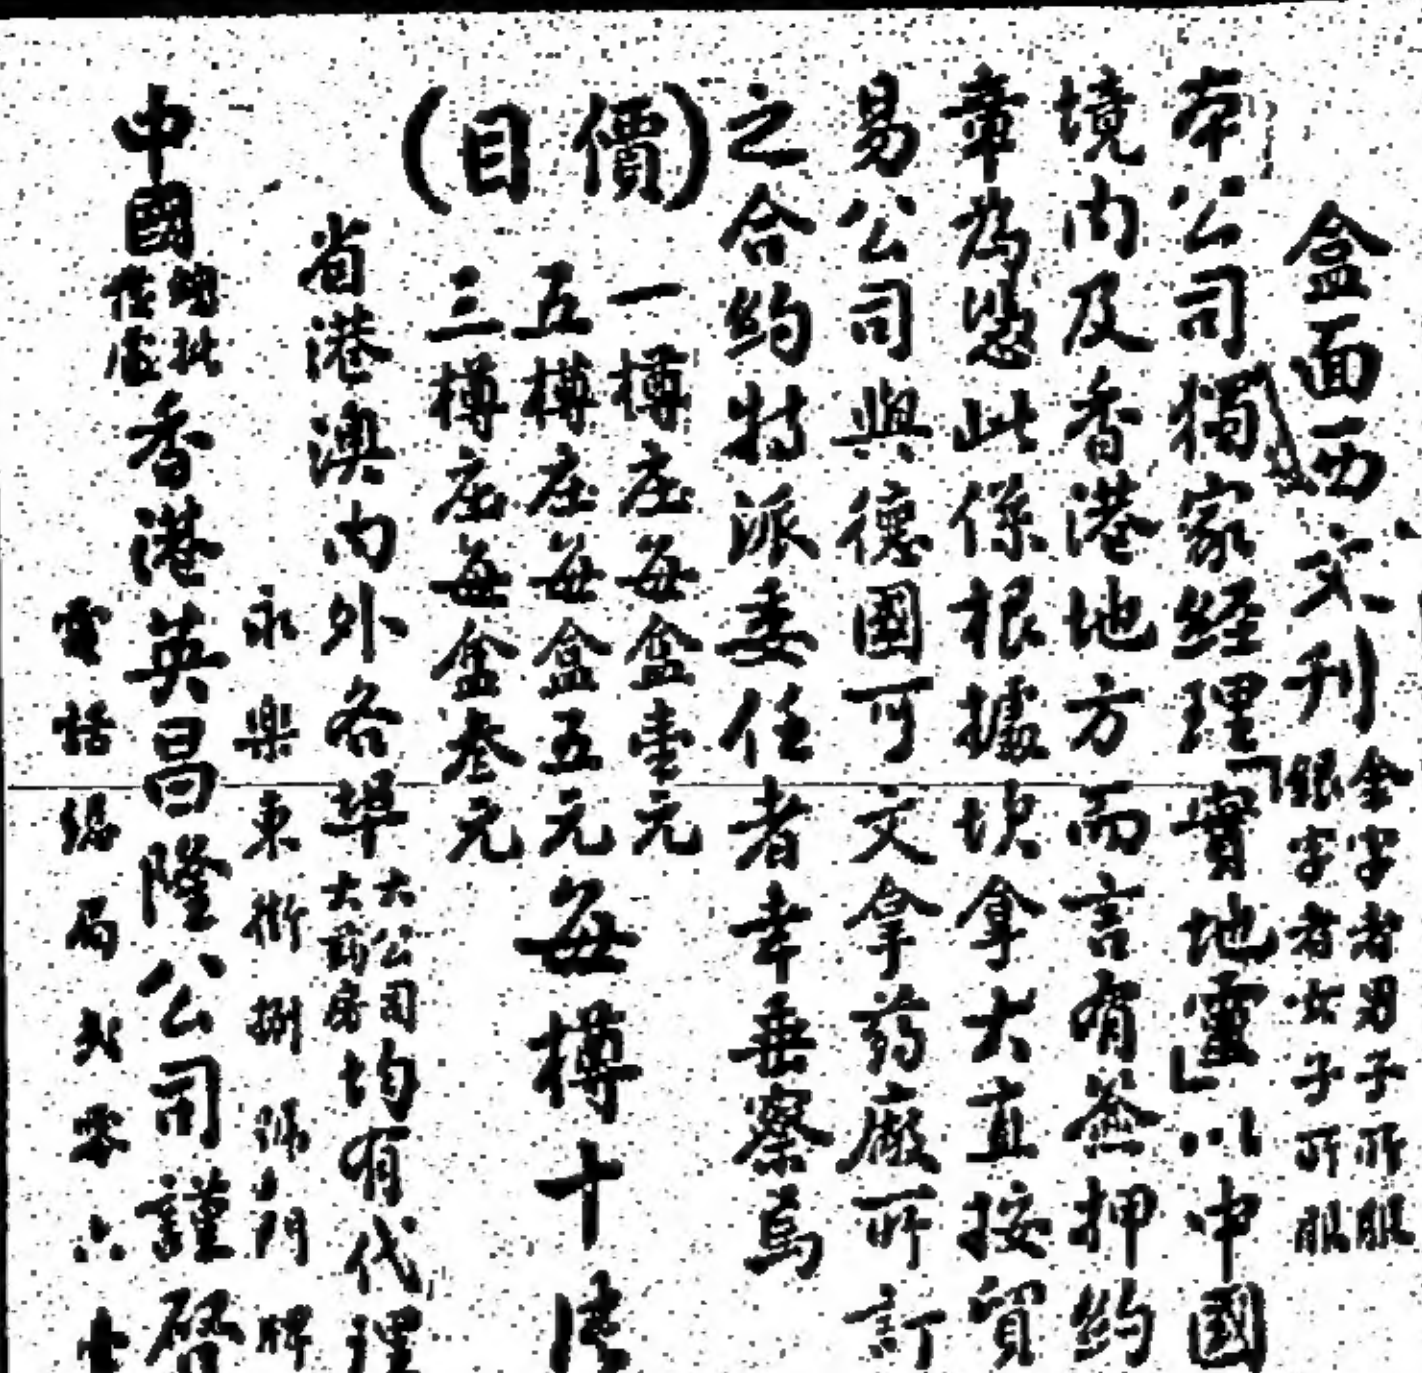 盒面西文刊金字者男子所服
銀字者女子所服
本公司獨家經理「實地靈」以中國
境內及香港地方而言有簽押約
章為憑此係根據坎拿大直按貿
易公司與德國可文拿药廠所訂
之合約特派委任者幸垂察焉
(價目)
一樽庄每盒壹元
五樽庄每盒五元
三樽庄每盒叁元
每樽十
省港澳內外各埠大公司大药房均有代理
永樂東街捌號門牌
中國總批發處香港英昌隆公司謹啓
電話總局弍零六